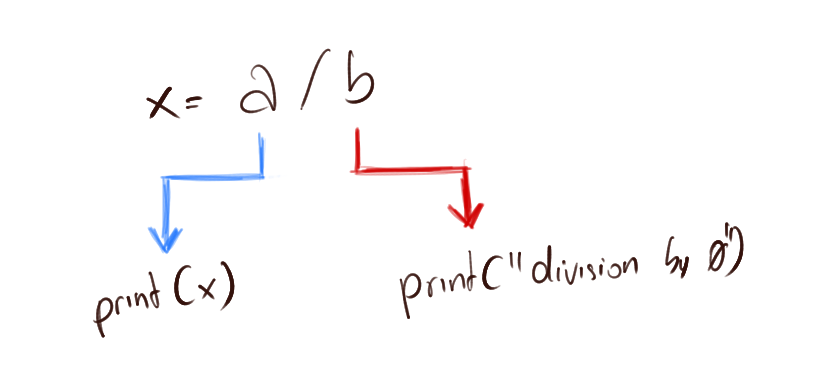 x = a / b
print(x)
print("division by 0")